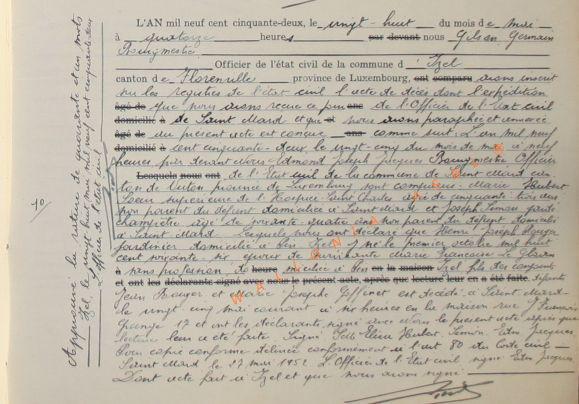 L'AN mil neuf cent cinquante-deux, le vingt-huit du mois de mai
à quatorze heures par devant nous Gilson Germain
Bourgmestre
Officier de l'état civil de la commune d'Izel
canton de Florenville province de Luxembourg, ont comparu avons inscrit
sur les registres de l'état civil l'acte de décès dont l'expédition
âgé de que nous avons reçue ce jour de l'Officier de l'état civil
domicilié à de Saint Mard et que nous avons paraphée et annexée
âgé de du présent acte est conçue comme suit: L'an mil neuf
domicilié à cent cinquante-deux, le vingt-cinq du mois de mai à neuf
heures par devant nous Edmond Joseph Jacques Bourgmestre Officier
Lesquels nous ont de l'Etat civil de la commune de Saint Mard can-
ton de Virton province de Luxembourg sont comparus: Marie Hubert
Soeur supérieure de l'Hospice Saint Charles âgée de cinquante trois ans
non parent du défunt domiciliée à Saint Mard et Joseph Simon garde
champêtre âgé de quatre ans non parent du défunt domicilié
à Saint Mard. Lesquels nous ont déclaré que Henri Joseph
jardinier domicilié à Izel y né le premier octobre mil huit
cent soixante-six époux de Marie Françoise
à sans profession, de heure domiciliée à en la maison Izel fils des conjoints
et ont les déclarants signé avec nous le présent acte, après que lecture leur en a été faite. défunts
Jean et Marie Josèphe est décédé à Saint Mard
le vingt cinq mai courant à six heures en la maison rue
17 et ont les déclarants signé avec nous le présent acte après que
lecture leur a été faite. Signé Hubert. Simon. Edm Jacques
Pour copie conforme délivrée conformément à l'art 80 du Code civil
Saint Mard le 27 mai 1952 L'Officier de l'Etat civil signé Edm Jacques
Dont acte fait à Izel et que nous avons signé
-10-
Approuvé la rature de quarante et un mots
Izel, le vingt huit mai mil neuf cent cinquante deux
L'Officier de l'état civil